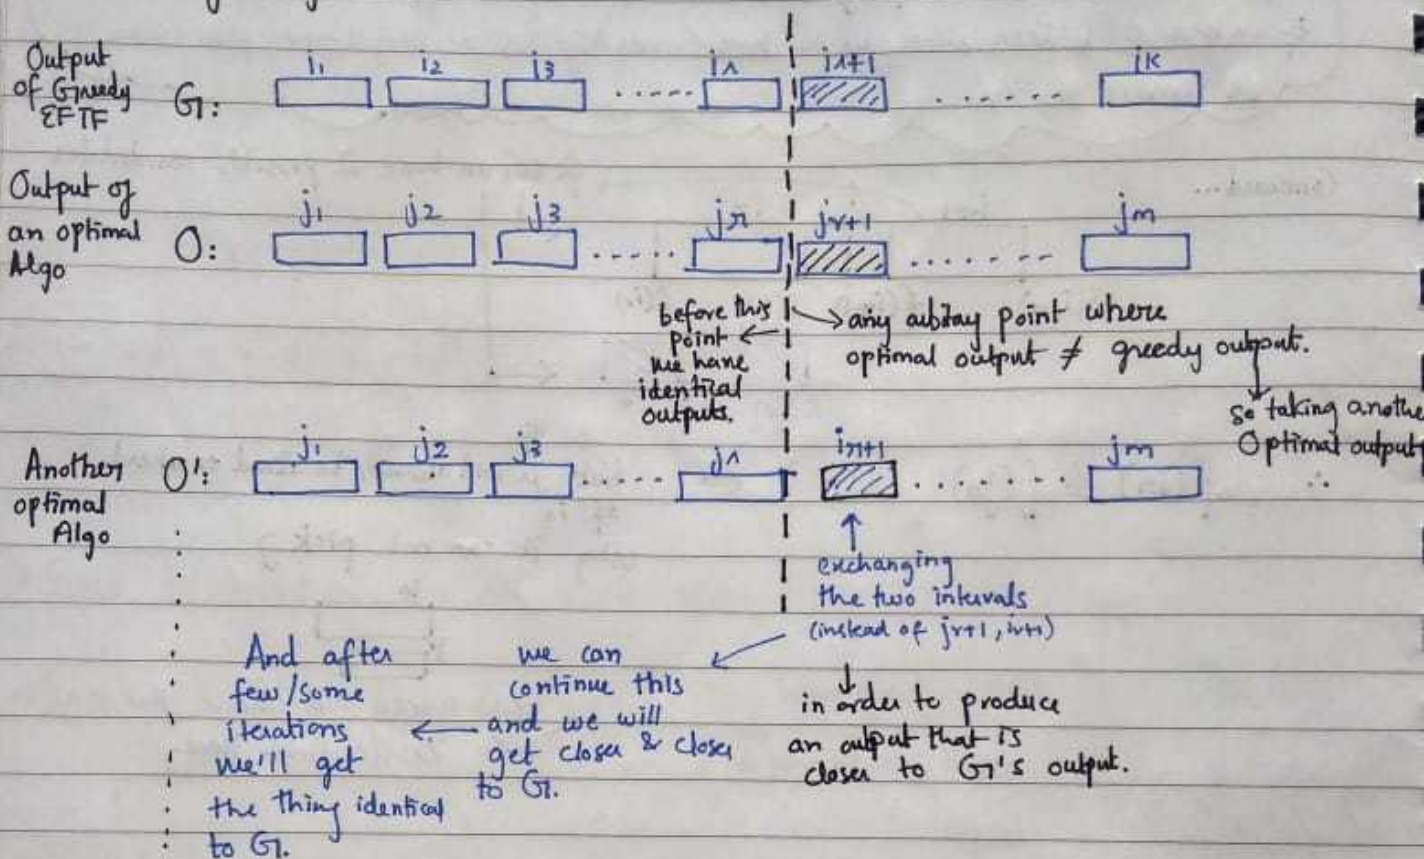 Output
of Greedy
EFTF
G:
i1 i2 i3 ...... ir ir+1 ........ ik
Output of
an optimal
Algo
O:
j1 j2 j3 ...... jr jr+1 ........ jm
before this
point
we have
identical
outputs.
any aubitay point where
optimal output ≠ greedy output.
so taking anothe
Optimal output
∴
Another
optimal
Algo
O':
j1 j2 j3 ...... jr ir+1 ........ jm
exchanging
the two intervals
(instead of jr+1, ir+1)
in order to produce
an output that is
closer to G's output.
we can
continue this
and we will
get closer & closer
to G.
And after
few/some
iterations
we'll get
the thing identical
to G.